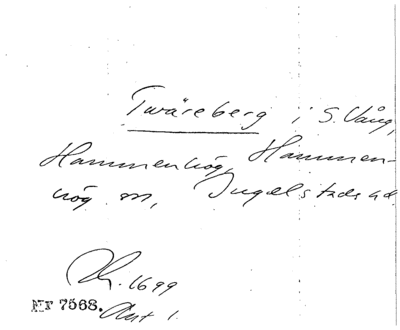 Twäreberg i S. Vång,
Hammenhög, Hammen-
hög sn, Ingelstads hd.
Lr. 1699
Nr 7568. Akt 1.